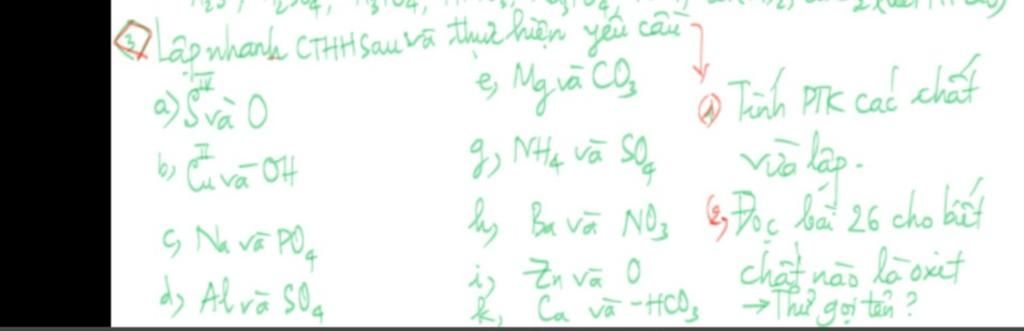 ③ Lập nhanh CTHH sau và thực hiện yêu cầu
a) S IV và O
b) Cu II và OH
c) Na và PO4
d) Al và SO4
e) Mg và CO3
g) NH4 và SO4
h) Ba và NO3
i) Zn và O
k) Ca và -HCO3
① Tính PTK các chất
vừa lập.
② Đọc bài 26 cho biết
chất nào là oxit
→ Thử gọi tên?